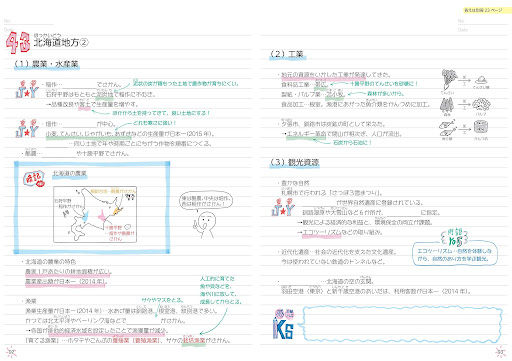 答えは別冊 23 ページ
43
北海道地方②
（1）農業・水産業
・稲作…　　　でさかん。
石狩平野は
→品種改良や客土で生産量を増やす。
ほかから土を持ってきて、良い土地にする！
・畑作…　　　が中心。
どれも寒さに強い！
小麦、てんさい、じゃがいも、あずきなどの生産量が日本一（2015年）。
…同じ土地で年や時期ごとにちがう作物を順番につくる。
・酪農…　　　や十勝平野でさかん。
北海道の農業
石狩平野
・稲作がさかん
十勝平野
・畑作や酪農が
さかん
東は酪農、中央は畑作、
西は稲作がさかん！
・北海道の農業の特色
農家1戸あたりの耕地面積が広い。
農業産出額が日本一（2014年）。
・漁業
漁業生産量が日本一（2014年）…水あげ量は釧路港、根室港、紋別港で多い。
かつては北太平洋やベーリング海などで　　　がさかん。
→各国が排他的経済水域を設定したことで漁獲量が減少。
「育てる漁業」…ホタテやこんぶの養殖業（養殖漁業）、サケの栽培漁業がさかん。
サケやマスをとる。
人工的に育てた
魚や貝などを、
海や川に放して、
成長してからとる。
92
（2）工業
・地元の資源をいかした工業が発達してきた。
食料品工業…帯広
十勝平野のてんさいを砂糖に！
製紙・パルプ業…苫小牧
森林が多いから。
食品加工…根室、漁港にあがった魚介類をかんづめに加工。
・夕張市、釧路市は炭鉱の町として栄えた。
→エネルギー革命で閉山が相次ぎ、人口が流出。
石炭から石油に！
（3）観光資源
・豊かな自然
札幌市で行われる「さっぽろ雪まつり」。
　　　が世界自然遺産に登録されている。
釧路湿原や大雪山など6か所が、　　　に指定。
→観光による経済的な利益と、環境保全の両立が課題。
→エコツーリズムなどの取り組み。
エコツーリズム…自然を体験しな
がら、自然のあり方を学ぶ観光。
・近代化遺産…社会の近代化を支えた文化遺産。
今は使われていない鉄道のトンネルなど。
・　　　…北海道の空の玄関。
羽田空港（東京）と新千歳空港のあいだは、利用客数が日本一（2014年）。
93